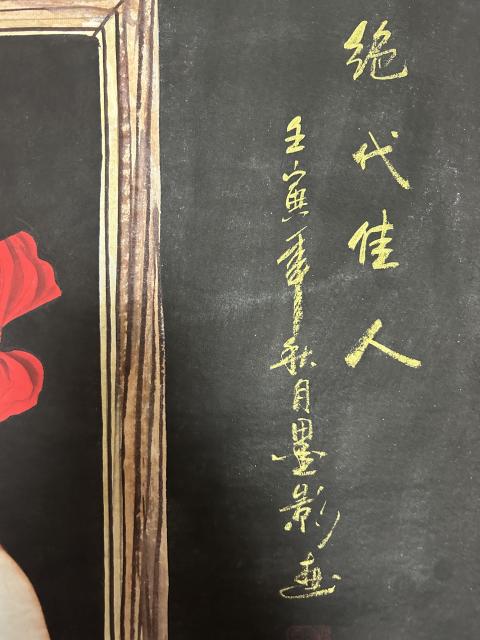 绝代佳人
壬寅年秋月墨影画